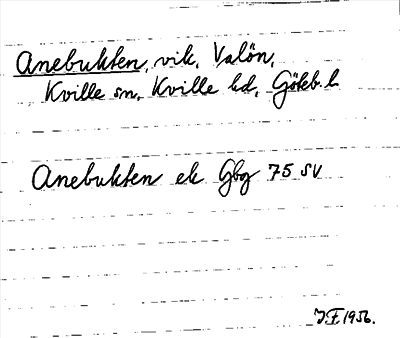 Anebukten, vik, Valön,
Kville sn, Kville hd, Göteb. l.
Anebukten ek Gbg 75 SV
J.F. 1956.